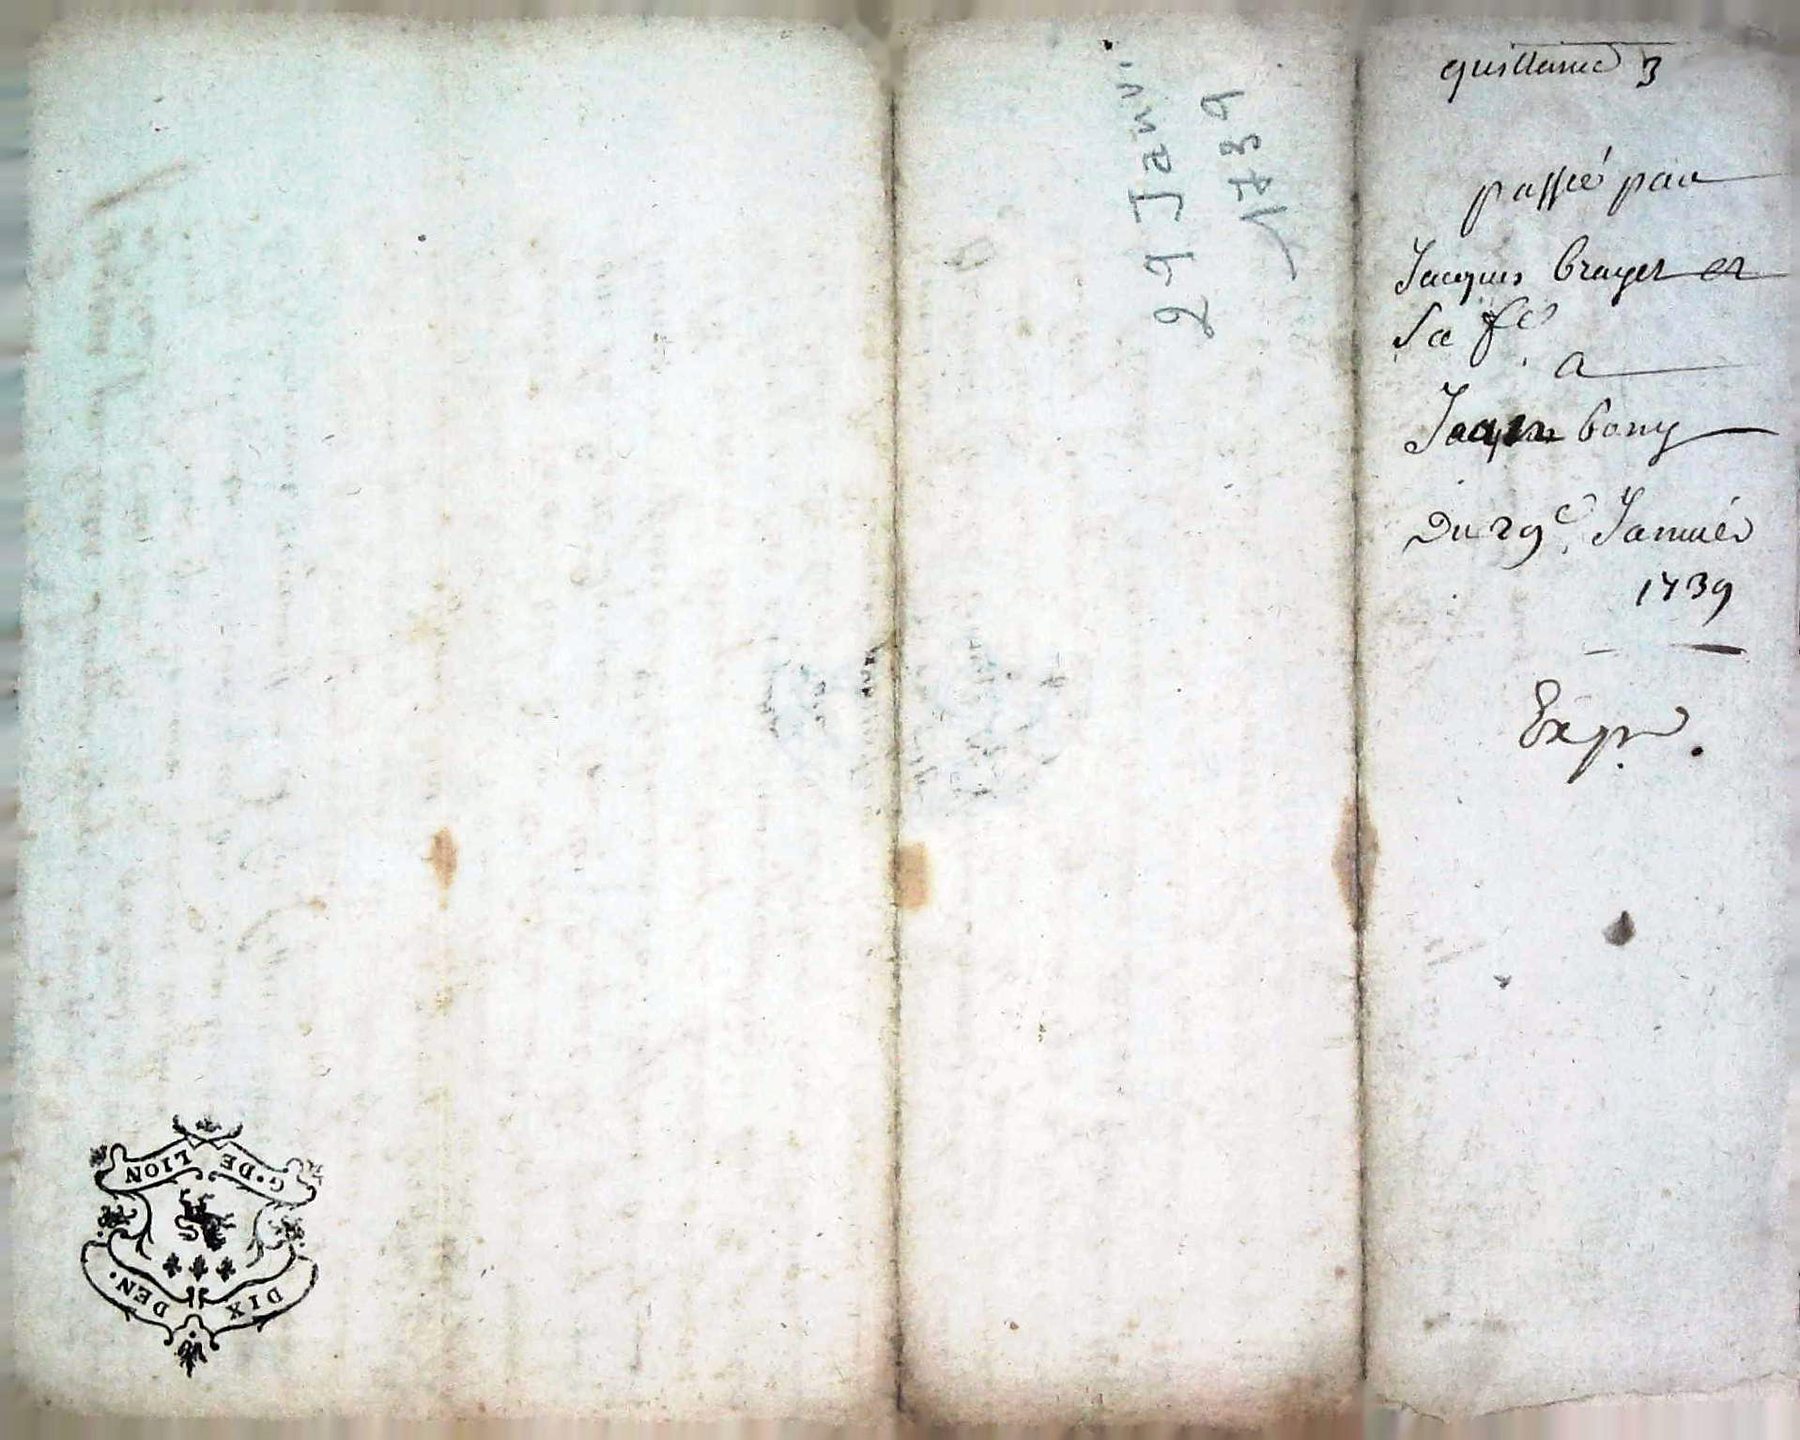 quittance 3
passée par
Jacques brayer et
Sa fe
a
Jacques bony
Du 29e. Janvier
1739
Exp.
29 Janv.
1739
G. DE LION
DIX DEN.